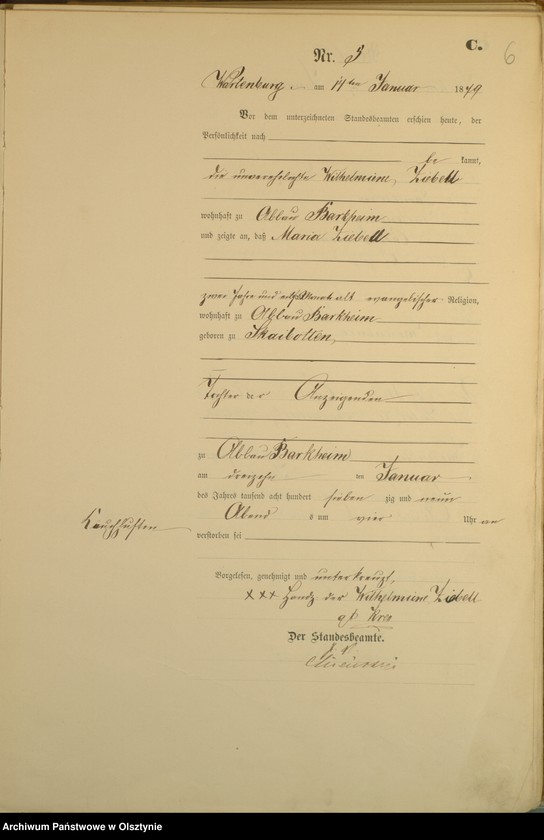 C.
6
Nr. 3
Wartenburg, am 14ten Januar 1879
Vor dem unterzeichneten Standesbeamten erschien heute, der
Persönlichkeit nach
be kannt,
die unverehelichte Wilhelmine Ziebell
wohnhaft zu Abbau Barkheim
und zeigte an, daß Maria Ziebell
zwei Jahre und elf Monate alt evangelischer Religion,
wohnhaft zu Abbau Barkheim
geboren zu Skaibotten,
Tochter der Anzeigenden
zu Abbau Barkheim
am dreizehn ten Januar
des Jahres tausend acht hundert sieben zig und neun
Abend s um vier Uhr an
Keuchhusten
verstorben sei
Vorgelesen, genehmigt und unterkreuzt,
XXX Handz. der Wilhelmine Ziebell
Der Standesbeamte.
Archiwum Państwowe w Olsztynie